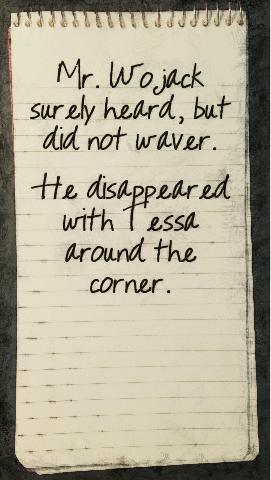 Mr. Wojack
surely heard, but
did not waver.
He disappeared
with Tessa
around the
corner.